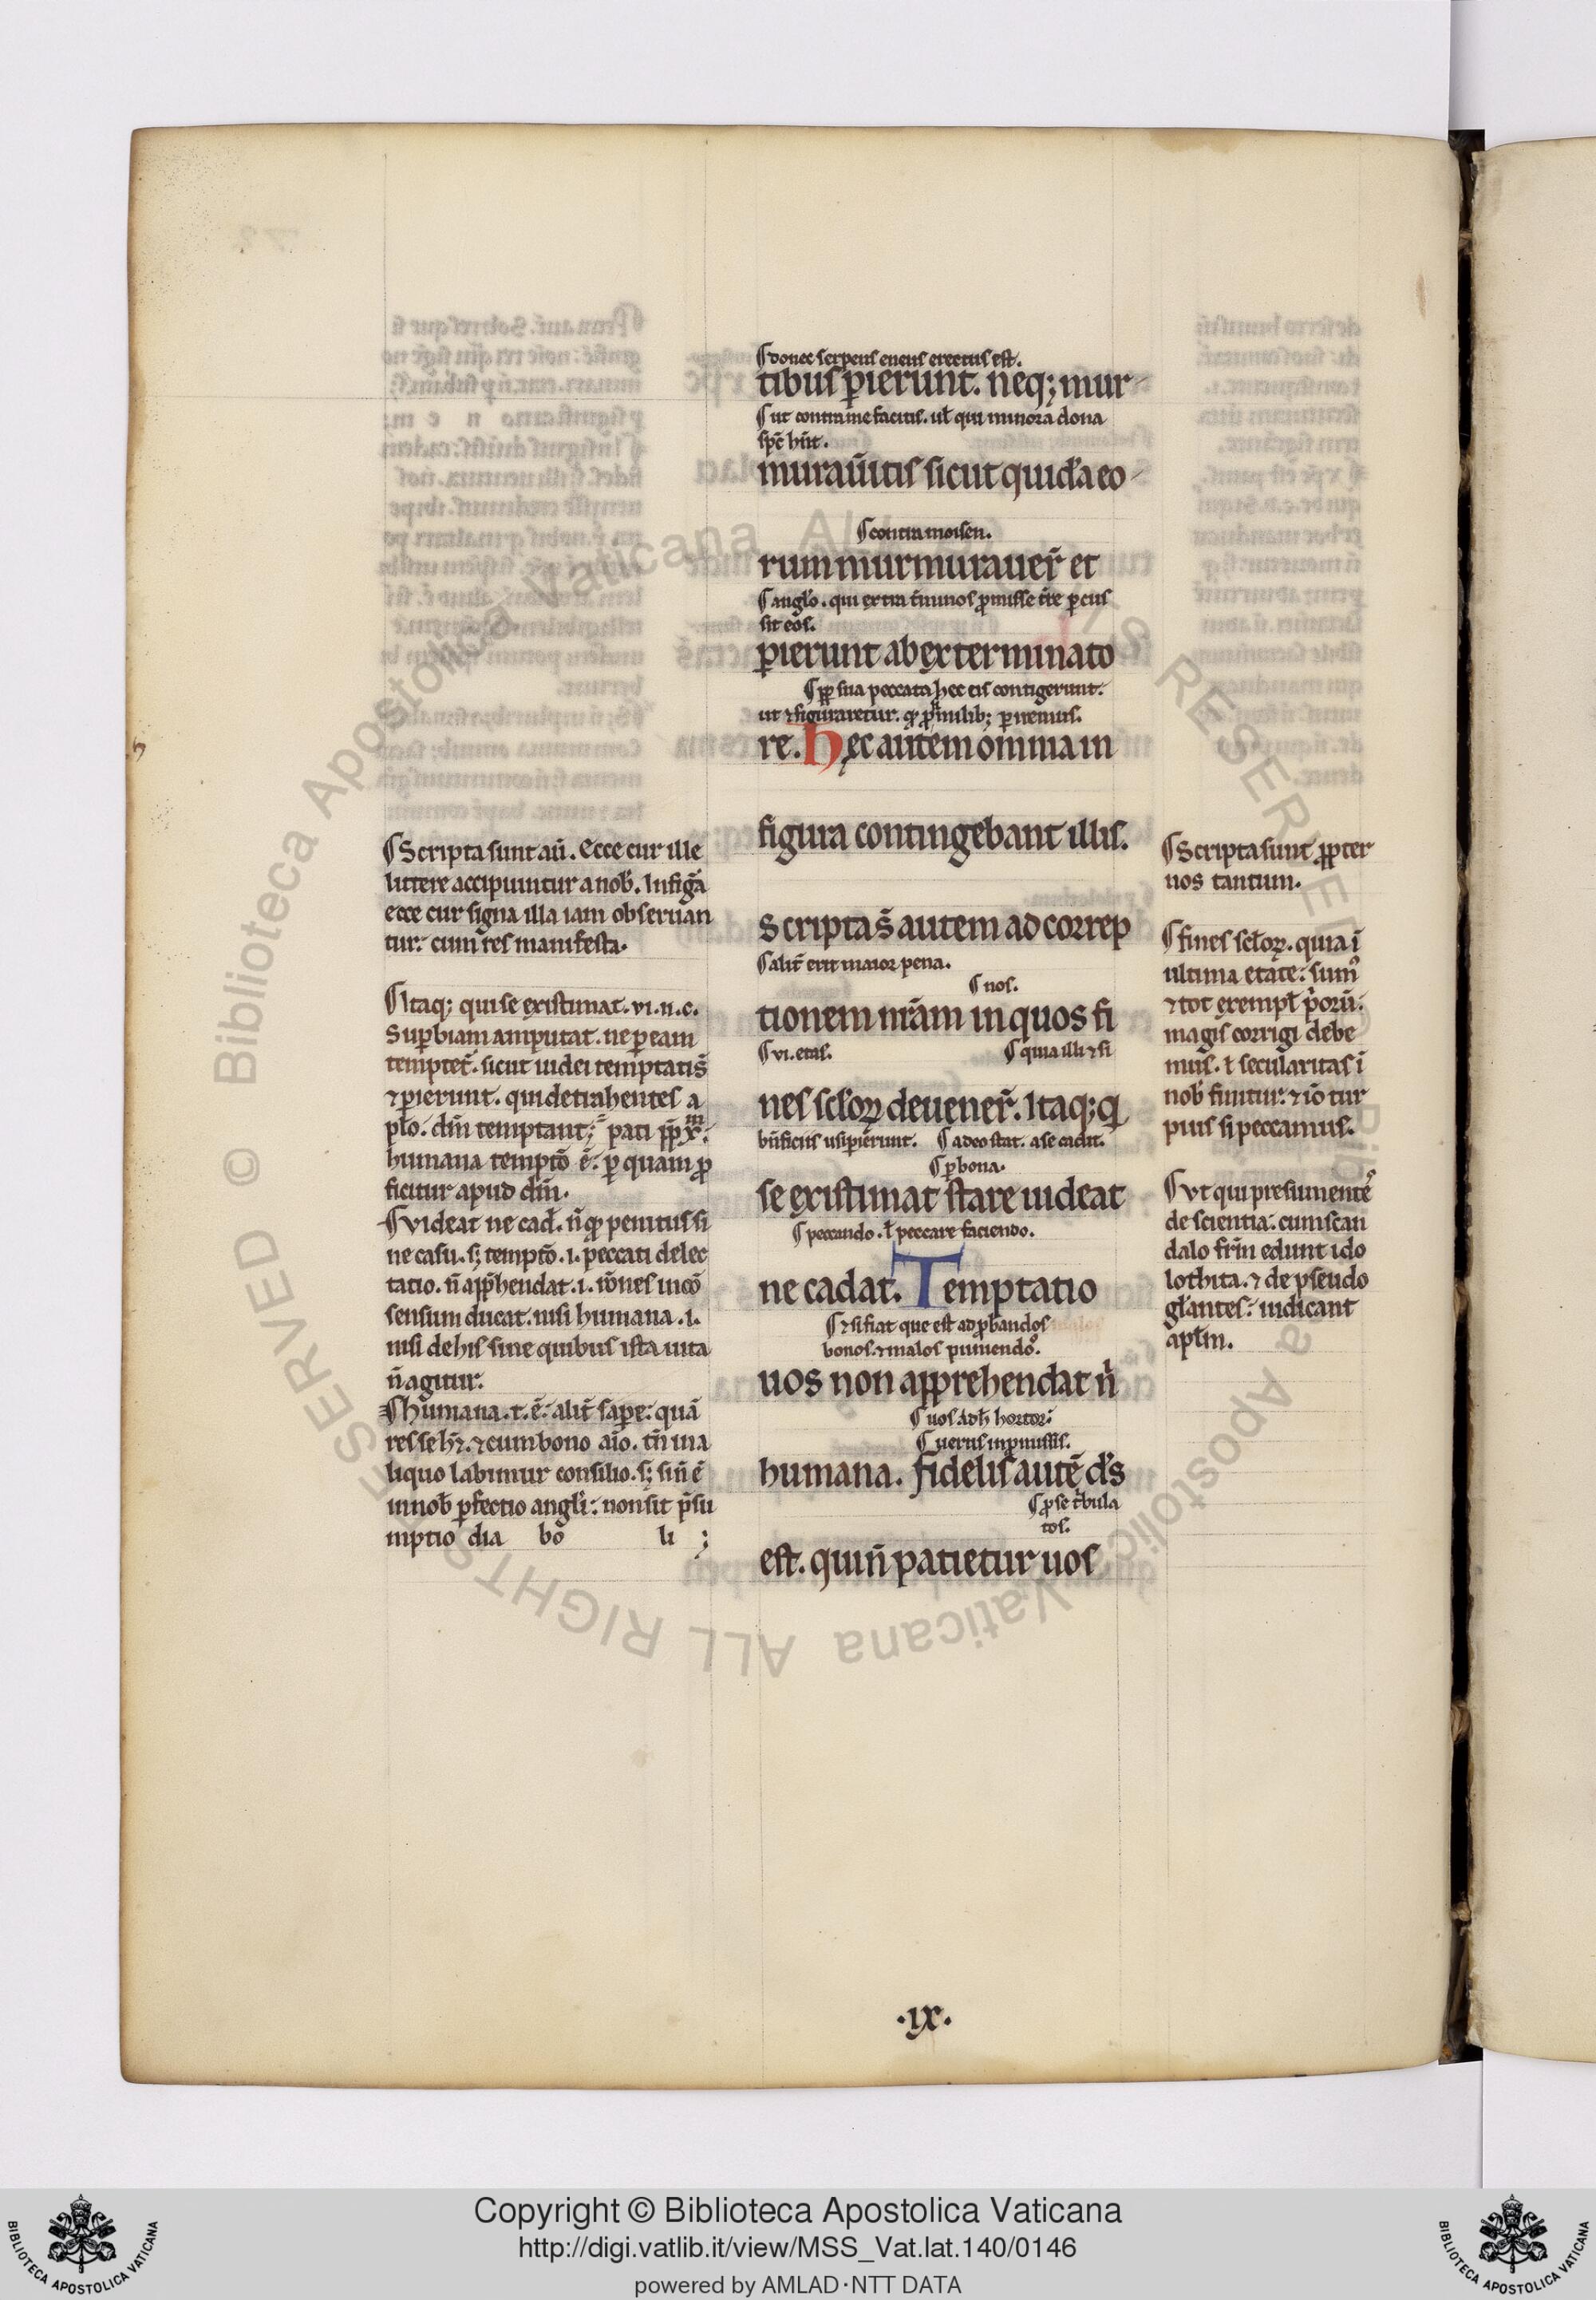 ¶ donec serpens eneus erectus est̅.
tibus p̲ierunt. neq; mur-
¶ ut contra me facitis. ul̅ qui minora dona
sp̅c h̅nt.
murau̅itis sicut quida̅ eo-
¶ contra moisen.
rum murmurauer̅ et
¶ anglo̅. qui extra t̅minos p̲misse t̅re p̲cus
sit eos.
p̲ierunt ab exterminato
¶ pp̅ sua peccata hec eis contigerunt.
re. Hęc autem omnia in
figura contingebant illis.
Scripta s̅ autem ad correp
¶ alit̅ erit maior pena.
¶ nos.
tionem nr̅am in quos fi
¶ vi. etas.
¶ quia illi ⁊ si
nes sclo̅ꝝ deuener̅. Itaq; q
bn̅ficiis usi p̲ierunt. ¶ a deo stat. a se cadit.
¶ p̲ bona.
se existimat stare uideat
¶ peccando. l̅ peccare faciendo.
ne cadat. Temptatio
¶ ⁊ si fiat que est ad p̲bandos
bonos. ⁊ malos puniendoꝰ.
uos non apprehendat n̅
¶ uos ad h̅ hortor:
¶ uerus in p̲missis.
humana. Fidelis aute̅ d̅s
¶ p̲ se t̅bula
tos.
est. qui n̅ patietur uos
¶ Scripta sunt au̅. Ecce cur ille
littere accipiuntur a nob̅. In fig̅a
ecce cur signa illa iam obseruan
tur: cum res manifesta.
¶ Itaq; qui se existimat. vi. n. c.
Sup̲biam amputat. ne p̲ eam
temptet̅. sicut iudei temptati s̅
⁊ p̲ierunt. qui detrahentes a
pl̅o. dm̅ temptant; pati pp̅ x̅.
humana tempto̅ e̅: p̲ quam p̲
ficitur apud dm̅.
¶ Videat ne cad̅. n̅ q̲ penitus si
ne casu. s; tempto̅. i. peccati delec
tatio. n̅ app̅hendat. i. ro̅nes in co̅
sensum ducat. nisi humana. i.
nisi de his sine quibus ista uita
n̅ agitur.
¶ humana. t. e̅: alit̅ sap̲e: qua̅
res se h̅t. ⁊ cum bono aio̅. tn̅ in a
liquo labimur consilio. s; si n̅ e̅
in nob̅ p̲fectio angli̅: non sit p̅su
mptio dia bo li ;
¶ Scripta sunt pp̲ter
nos tantum.
¶ fines scl̅oꝝ. quia i̅
ultima etate: sumꝰ
⁊ tot exempl̅ p̅oru̅:
magis corrigi debe
mus. l̅ secularitas i̅
nob̅ finitur: ⁊ io̅ tur
pius si peccamus.
¶ Vt qui presumenteꝰ
de scientia: cum scan
dalo fr̅m edunt ido
lothita. ⁊ de pseudo
gl̅antes: iudicant
apl̅m.
.ix.
Copyright © Biblioteca Apostolica Vaticana
http://digi.vatlib.it/view/MSS_Vat.lat.140/0146
powered by AMLAD·NTT DATA
BIBLIOTECA APOSTOLICA VATICANA
BIBLIOTECA APOSTOLICA VATICANA
© Biblioteca Apostolica Vaticana ALL RIGHTS RESERVED